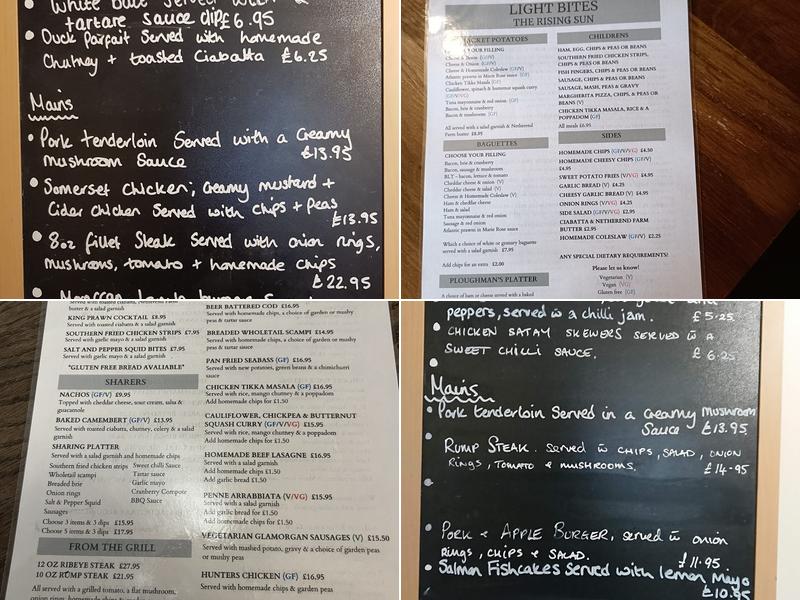 tartare sauce dip £6.95
Duck Parfait Served with homemade
Chutney + toasted Ciabatta £6.25
Mains
Pork tenderloin Served with a Creamy
mushroom Sauce £13.95
Somerset chicken; creamy mustard +
Cider Chicken Served with chips + Peas
£13.95
8oz fillet Steak Served with onion rings,
mushrooms, tomato + homemade chips
£22.95
LIGHT BITES
THE RISING SUN
JACKET POTATOES
YOUR FILLING
Cheese & Onion (GF/V)
Cheese & Homemade Coleslaw (GF/V)
Atlantic prawns in Marie Rose sauce (GF)
Chicken Tikka Masala (GF)
Cauliflower, spinach & butternut squash curry
(GF/V/VG)
Tuna mayonnaise & red onion (GF)
Bacon, brie & cranberry
Bacon & mushroom (GF)
All served with a salad garnish & Netherend
Farm butter £8.95
BAGUETTES
CHOOSE YOUR FILLING
Bacon, brie & cranberry
Bacon, sausage & mushroom
BLT - bacon, lettuce & tomato
Cheddar cheese & onion (V)
Cheddar cheese & salad (V)
Cheese & Homemade Coleslaw (V)
Ham & cheddar cheese
Ham & salad
Tuna mayonnaise & red onion
Sausage & red onion
Atlantic prawns in Marie Rose sauce
Which a choice of white or granary baguette
served with a salad garnish £7.95
Add chips for an extra £2.00
PLOUGHMAN'S PLATTER
A choice of ham or cheese served with a baked
CHILDRENS
HAM, EGG, CHIPS & PEAS OR BEANS
SOUTHERN FRIED CHICKEN STRIPS,
CHIPS & PEAS OR BEANS
FISH FINGERS, CHIPS & PEAS OR BEANS
SAUSAGE, CHIPS & PEAS OR BEANS
SAUSAGE, MASH, PEAS & GRAVY
MARGHERITA PIZZA, CHIPS, & PEAS OR
BEANS (V)
CHICKEN TIKKA MASALA, RICE & A
POPPADOM (GF)
All meals £6.95
SIDES
HOMEMADE CHIPS (GF/V/VG) £4.50
HOMEMADE CHEESY CHIPS (GF/V)
£4.95
SWEET POTATO FRIES (V/VG) £4.95
GARLIC BREAD (V) £4.25
CHEESY GARLIC BREAD (V) £4.95
ONION RINGS (V/VG) £4.25
SIDE SALAD (GF/V/VG) £2.95
CIABATTA & NETHEREND FARM
BUTTER £2.95
HOMEMADE COLESLAW (GF/V) £2.25
ANY SPECIAL DIETARY REQUIREMENTS?
Please let us know!
Vegetarian (V)
Vegan (VG)
Gluten free (GF)
butter & salad garnish
KING PRAWN COCKTAIL £8.95
Served with toasted ciabatta & salad garnish
SOUTHERN FRIED CHICKEN STRIPS £7.95
Served with garlic mayo & salad garnish
SALT AND PEPPER SQUID BITES £7.95
Served with garlic mayo & salad garnish
*GLUTEN FREE BREAD AVALIABLE*
SHARERS
NACHOS (GF/V) £9.95
Topped with cheddar cheese, sour cream, salsa &
guacamole
BAKED CAMEMBERT (GF/V) £13.95
Served with toasted ciabatta, chutney, celery & a salad
garnish
SHARING PLATTER
Served with a salad garnish and homemade chips
Southern fried chicken strips Sweet chilli Sauce
Wholetail scampi Tartar sauce
Breaded brie Garlic mayo
Onion rings Cranberry Compote
Salt & Pepper Squid BBQ Sauce
Sausages
Choose 3 items & 3 dips £15.95
Choose 5 items & 3 dips £17.95
FROM THE GRILL
12 OZ RIBEYE STEAK £27.95
10 OZ RUMP STEAK £21.95
All served with a grilled tomato, a flat mushroom,
BEER BATTERED COD £16.95
Served with homemade chips, a choice of garden or mushy
peas & tartar sauce
BREADED WHOLETAIL SCAMPI £14.95
Served with homemade chips, a choice of garden or mushy
peas & tartar sauce
PAN FRIED SEABASS (GF) £16.95
Served with new potatoes, green beans & a chimichurri
sauce
CHICKEN TIKKA MASALA (GF) £16.95
Served with rice, mango chutney & a poppadom
Add homemade chips for £1.50
CAULIFLOWER, CHICKPEA & BUTTERNUT
SQUASH CURRY (GF/V/VG) £15.95
Served with rice, mango chutney & a poppadom
Add homemade chips for £1.50
HOMEMADE BEEF LASAGNE £16.95
Served with a salad garnish
Add homemade chips £1.50
Add garlic bread £1.50
PENNE ARRABBIATA (V/VG) £15.95
Served with a salad garnish
Add garlic bread for £1.50
Add homemade chips for £1.50
VEGETARIAN GLAMORGAN SAUSAGES (V) £15.50
Served with mashed potato, gravy & a choice of garden peas
or mushy peas
HUNTERS CHICKEN (GF) £16.95
Served with homemade chips & garden peas
peppers, served in a chilli jam. £5.25
CHICKEN SATAY SKEWERS SERVED W A
SWEET CHILLI SAUCE. £6.25
Mains
Pork tenderloin Served in a Creamy mushroom
Sauce £13.95
RUMP STEAK. served w CHIPS, SALAD, ONION
Rings, TOMATO & MUSHROOMS. £14.95
PORK & APPLE BURGER, served w onion
rings, CHIPS & SALAD. £11.95
Salmon Fishcakes Served with lemon Mayo
£10.95